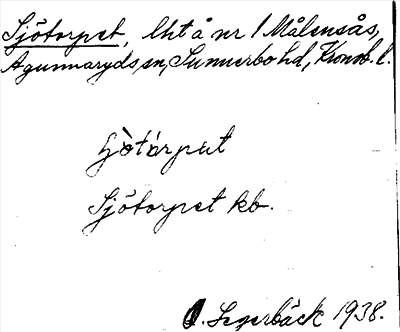 Sjötorpet, lht å nr 1 Målensås,
Agunnaryds sn, Sunnerbo hd, Kronob. l.
Sjötorpet kb.
O. Segerbäck 1938.